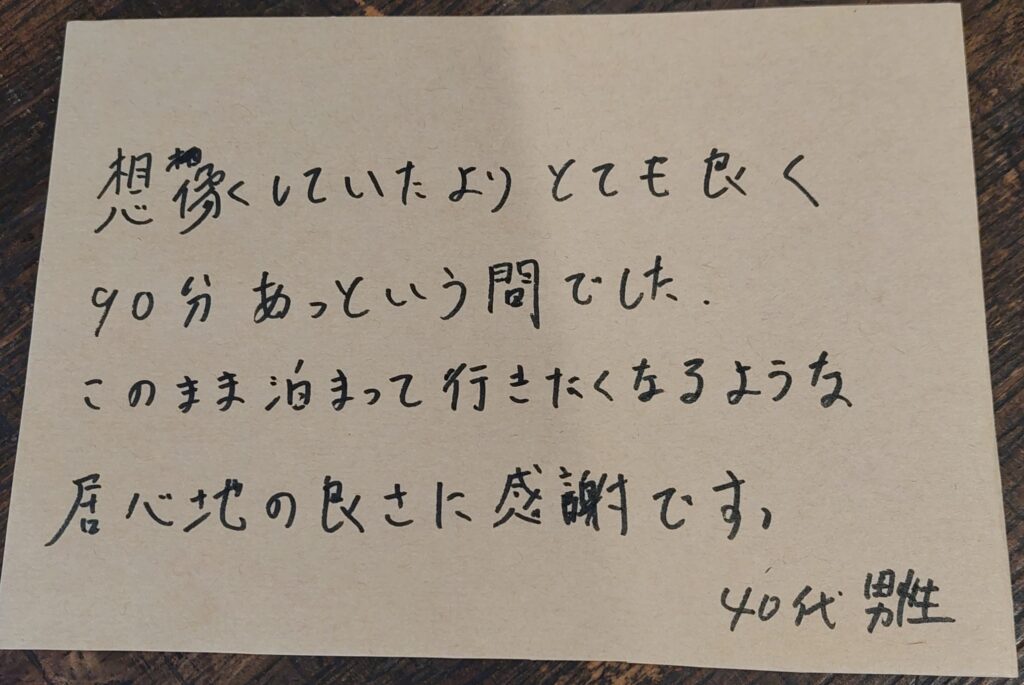 想像していたよりとても良く
90分あっという間でした.
このまま泊まって行きたくなるような
居心地の良さに感謝です,
40代 男性